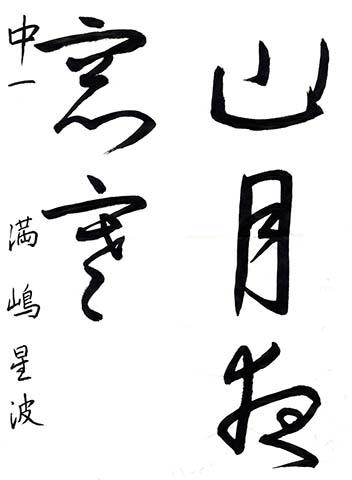 山月夜
窓寒
中一 満嶋星波